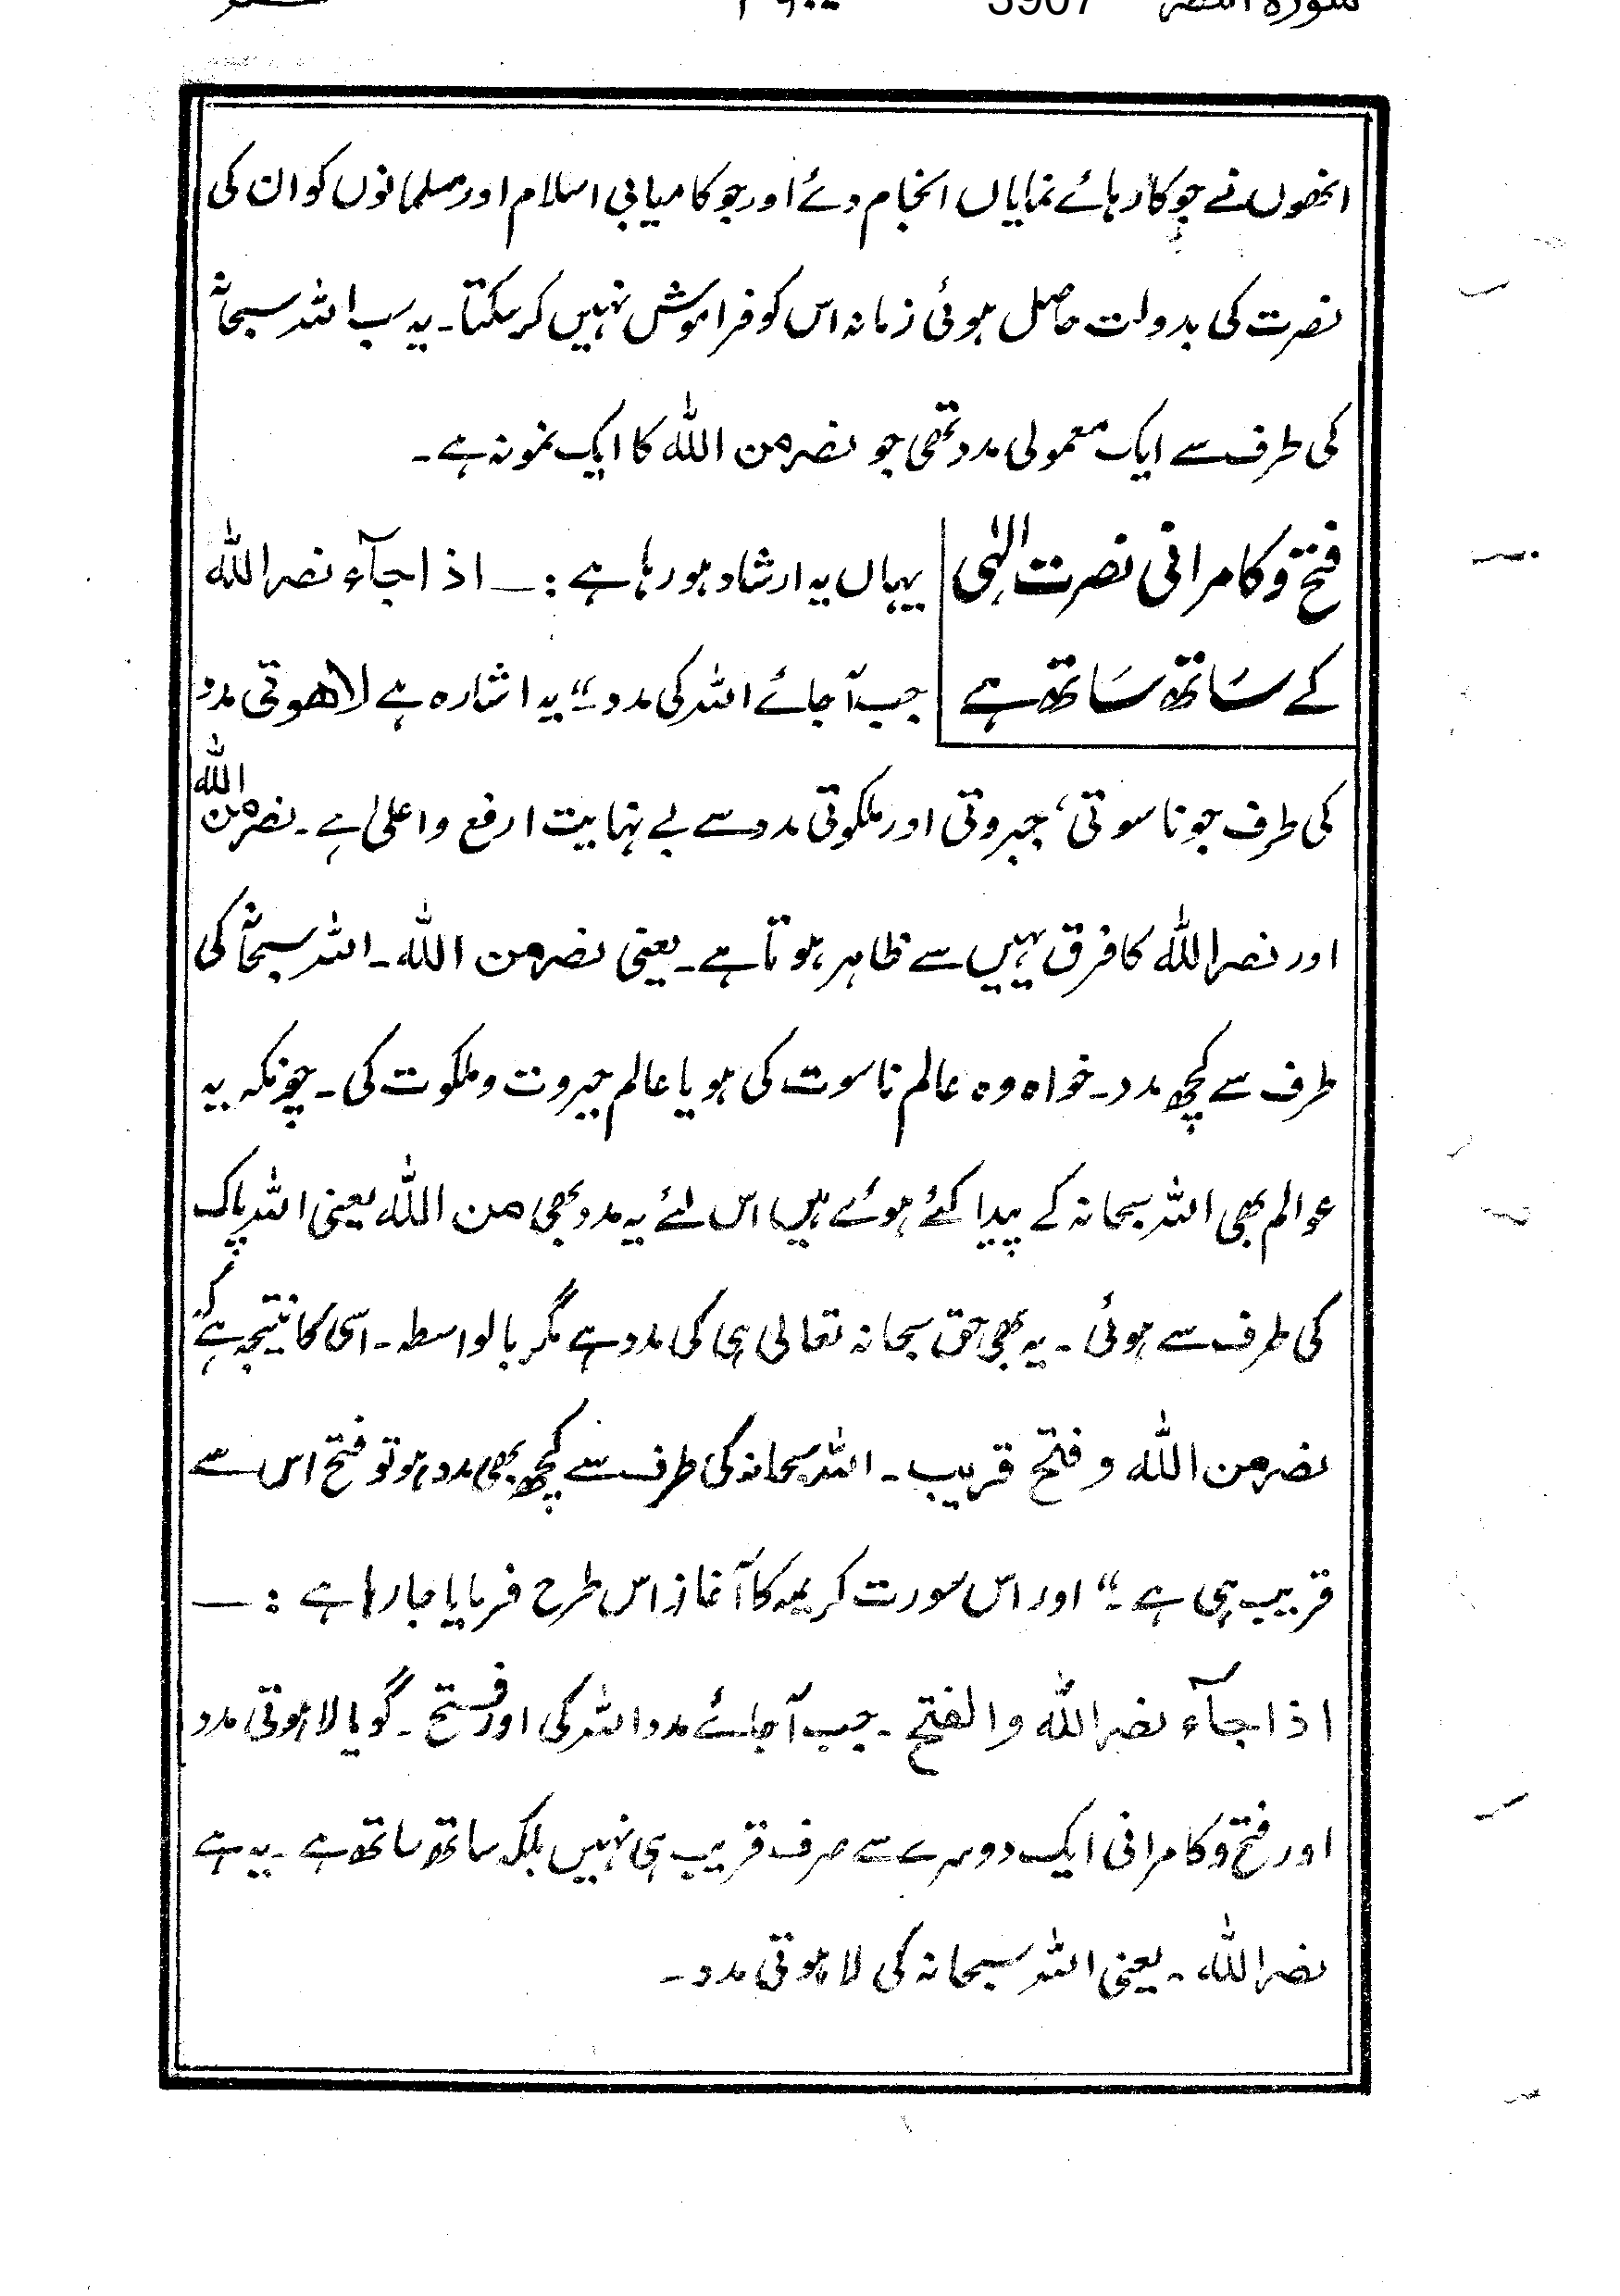 سورۃ النصر 3907
انھوں نے جو کارہائے نمایاں انجام دئے اور جو کامیابی اسلام اور مسلمانوں کو ان کی
نصرت کی بدولت حاصل ہوئی زمانہ اس کو فراموش نہیں کر سکتا۔ یہ سب اللہ سبحانہٗ
کی طرف سے ایک معمولی مدد تھی جو نصر من اللہ کا ایک نمونہ ہے۔
فتح و کامرانی نصرت الٰہی یہاں یہ ارشاد ہو رہا ہے :— اذا جآء نصر اللہ
کے ساتھ ساتھ ہے جب آ جائے اللہ کی مدد ۔“ یہ اشارہ ہے لاھوتی مدد
کی طرف جو ناسوتی، جبروتی اور ملکوتی مدد سے بے نہایت ارفع و اعلیٰ ہے۔ نصر من اللہ
اور نصر اللہ کا فرق یہیں سے ظاہر ہوتا ہے۔ یعنی نصر من اللہ۔ اللہ سبحانہٗ کی
طرف سے کچھ مدد۔ خواہ وہ عالم ناسوت کی ہو یا عالم جبروت و ملکوت کی۔ چونکہ یہ
عوالم بھی اللہ سبحانہ کے پیدا کئے ہوئے ہیں اس لئے یہ مدد بھی من اللہ یعنی اللہ پاک
کی طرف سے ہوئی ۔ یہ بھی حق سبحانہ تعالی ہی کی مدد ہے مگر بالواسطہ۔ اسی کا نتیجہ ہے کہ
نصر من اللہ و فتح قریب۔ اللہ سبحانہ کی طرف سے کچھ بھی مدد ہو تو فتح اس سے
قریب ہی ہے ۔“ اور اس سورت کریمہ کا آغاز اس طرح فرمایا جا رہا ہے :—
اذا جآء نصر اللہ والفتح ۔ جب آ جائے مدد اللہ کی اور فتح ۔ گویا لاہوتی مدد
اور فتح و کامرانی ایک دوسرے سے صرف قریب ہی نہیں بلکہ ساتھ ساتھ ہے ۔ یہ ہے
نصر اللہ ۔ یعنی اللہ سبحانہ کی لاہوتی مدد ۔